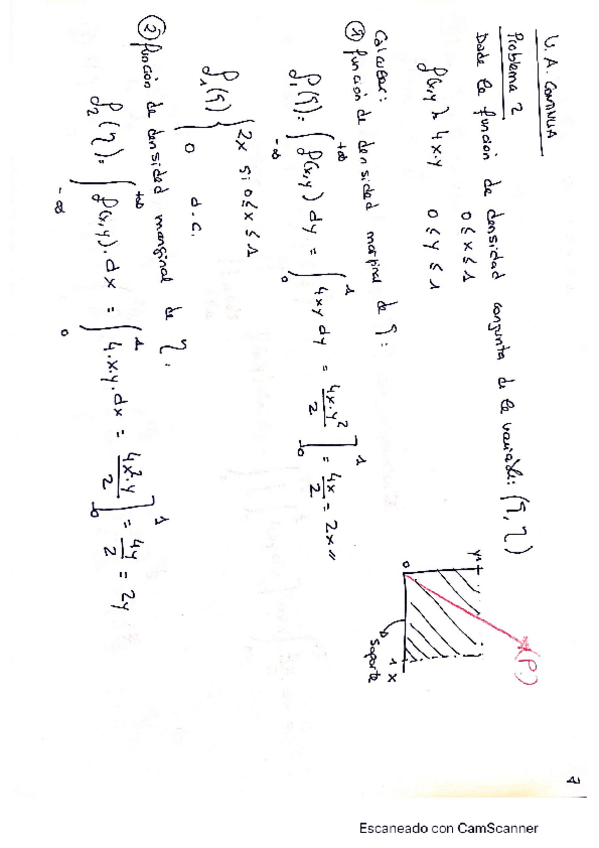 V. A. CONTINUA
Problema 2
Dada la función de densidad conjunta de la variable: (ξ, η)
f(x,y) = 4x.y 0 ≤ x ≤ 1
0 ≤ y ≤ 1
Calcular:
① función de densidad marginal de ξ:
f₁(ξ) = ∫_{-∞}^{+∞} f(x,y) dy = ∫_0^1 4xy dy = 4x.y²/2 ]_0^1 = 4x/2 = 2x //
f₁(ξ) { 2x si 0 ≤ x ≤ 1
0 d.c.
② función de densidad marginal de η:
f₂(η) = ∫_{-∞}^{+∞} f(x,y).dx = ∫_0^1 4.x.y.dx = 4x².y/2 ]_0^1 = 4y/2 = 2y
y 1
0
1 x
soporte
(P.)
Escaneado con CamScanner